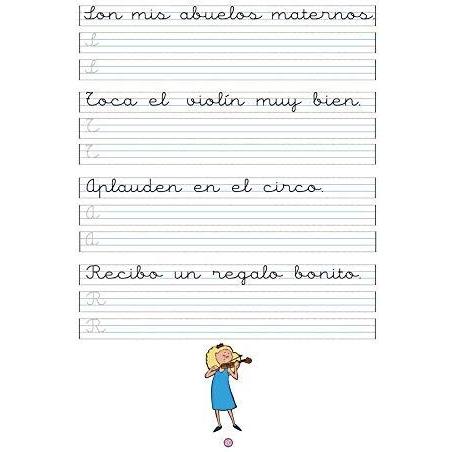 Son mis abuelos maternos.
S
S
Toca el violín muy bien.
T
T
Aplauden en el circo.
A
A
Recibo un regalo bonito.
R
R